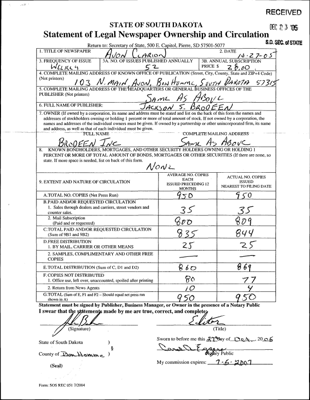 RECEIVED
DEC 23 '05
S.D. SEC. of STATE
STATE OF SOUTH DAKOTA
Statement of Legal Newspaper Ownership and Circulation
Return to: Secretary of State, 500 E. Capitol, Pierre, SD 57501-5077
1. TITLE OF NEWSPAPER
AVON CLARION
2. DATE
10-27-05
3. FREQUENCY OF ISSUE
WEEKLY
3A. NO. OF ISSUES PUBLISHED ANNUALLY
52
3B. ANNUAL SUBSCRIPTION
PRICE $ 28.00
4. COMPLETE MAILING ADDRESS OF KNOWN OFFICE OF PUBLICATION (Street, City, County, State and ZIP+4 Code)
(Not printers)
103 N. MAIN AVON, BON HOMME, SOUTH DAKOTA 57315
5. COMPLETE MAILING ADDRESS OF THE HEADQUARTERS OR GENERAL BUSINESS OFFICES OF THE
PUBLISHER (Not printers)
SAME AS ABOVE
6. FULL NAME OF PUBLISHER:
JACKSON S. BRODEEN
7. OWNER (If owned by a corporation, its name and address must be stated and
FULL NAME
COMPLETE MAILING ADDRESS
BRODEEN INC
SAME AS ABOVE
8. KNOWN BONDHOLDERS, MORTGAGEES, AND OTHER SECURITY HOLDERS OWNING OR HOLDING 1
PERCENT OR MORE OF TOTAL AMOUNT OF BONDS, MORTGAGES OR OTHER SECURITIES (If there are none, so
state. If more space is needed, list on back of this form.
NONE
9. EXTENT AND NATURE OF CIRCULATION
AVERAGE NO. COPIES
EACH
ISSUED PRECEDING 12
MONTHS
ACTUAL NO. COPIES
ISSUED
NEAREST TO FILING DATE
A. TOTAL NO. COPIES (Net Press Run)
950
950
B. PAID AND/OR REQUESTED CIRCULATION
1. Sales through dealers and carriers, street vendors and
counter sales.
35
35
2. Mail Subscription
(Paid and or requested)
800
809
C. TOTAL PAID AND/OR REQUESTED CIRCULATION
(Sum of 9B1 and 9B2)
835
844
D. FREE DISTRIBUTION
1. BY MAIL, CARRIER OR OTHER MEANS
25
25
2. SAMPLES, COMPLIMENTARY AND OTHER FREE
COPIES
E. TOTAL DISTRIBUTION (Sum of C, D1 and D2)
860
869
F. COPIES NOT DISTRIBUTED
1. Office use, left over, unaccounted, spoiled after printing
80
77
2. Return from News Agents
10
4
G. TOTAL (Sum of E, F1 and F2 - Should equal net press run
shown in A)
950
950
Statement must be signed by Publisher, Business Manager, or Owner in the presence of a Notary Public
I swear that the statements made by me are true, correct, and complete:
Editor
(Signature)
(Title)
State of South Dakota )
) §
County of Bon Homme )
(Seal)
Sworn to before me this 27 day of Oct, 2005
Notary Public
My commission expires: 7-6-2007
Form: SOS REC 051 7/2004